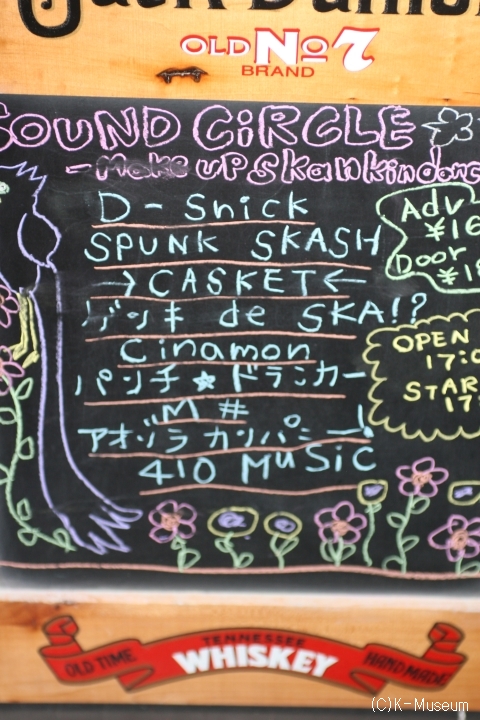 OLD No 7
BRAND
SOUND CiRCLE
-Make up skankindanc
D-Snick
SPUNK SKASH
→CASKET←
de SKA!?
Cinamon
パンチ★ドランカー
M#
アオゾラカンパニー!
410 MUSiC
Adv
¥16
Door
¥18
OPEN
17:0
STAR
17:
TENNESSEE
OLD TIME WHISKEY HAND MADE
(C)K-Museum